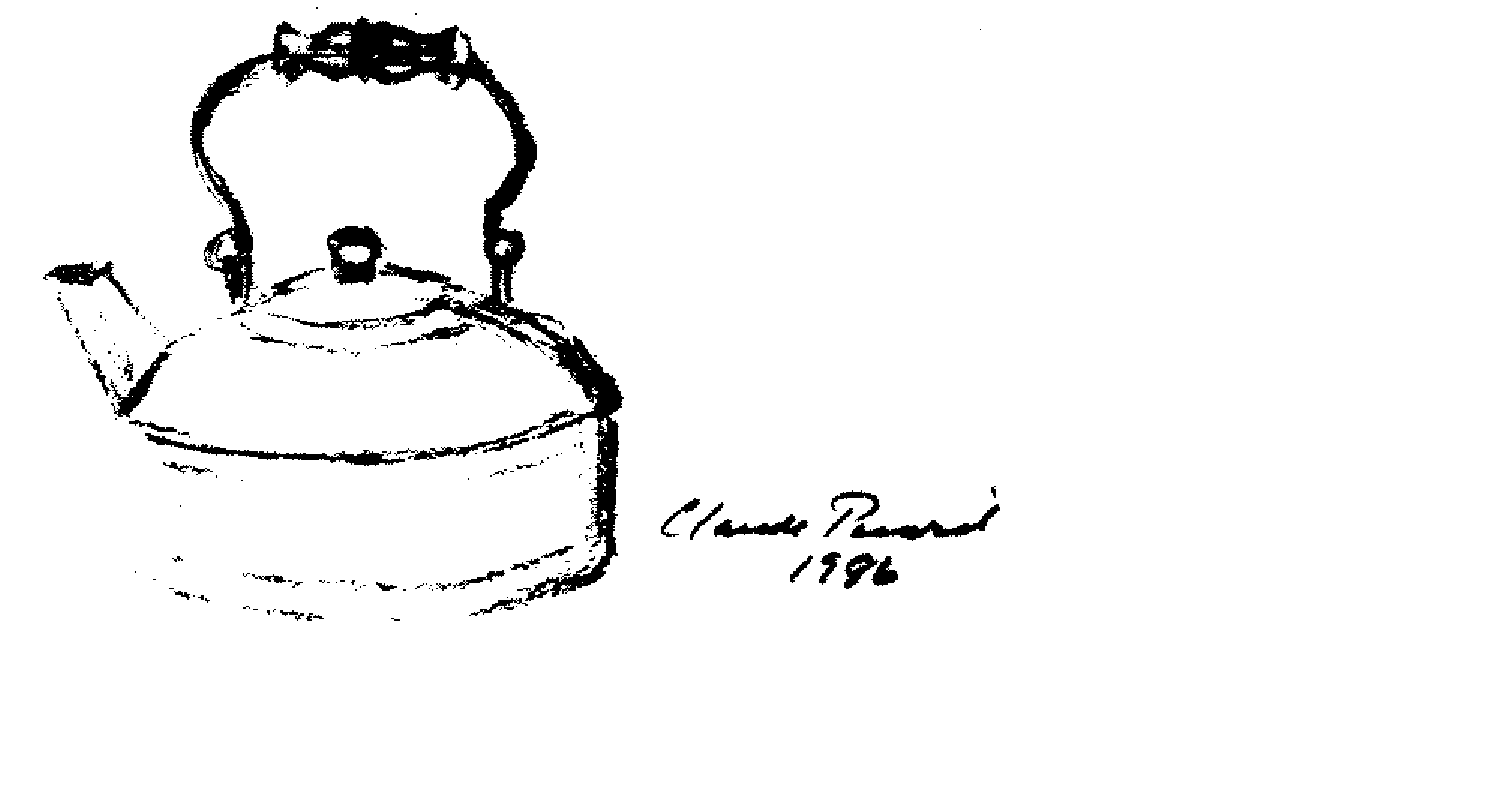 Claude Picard
1986